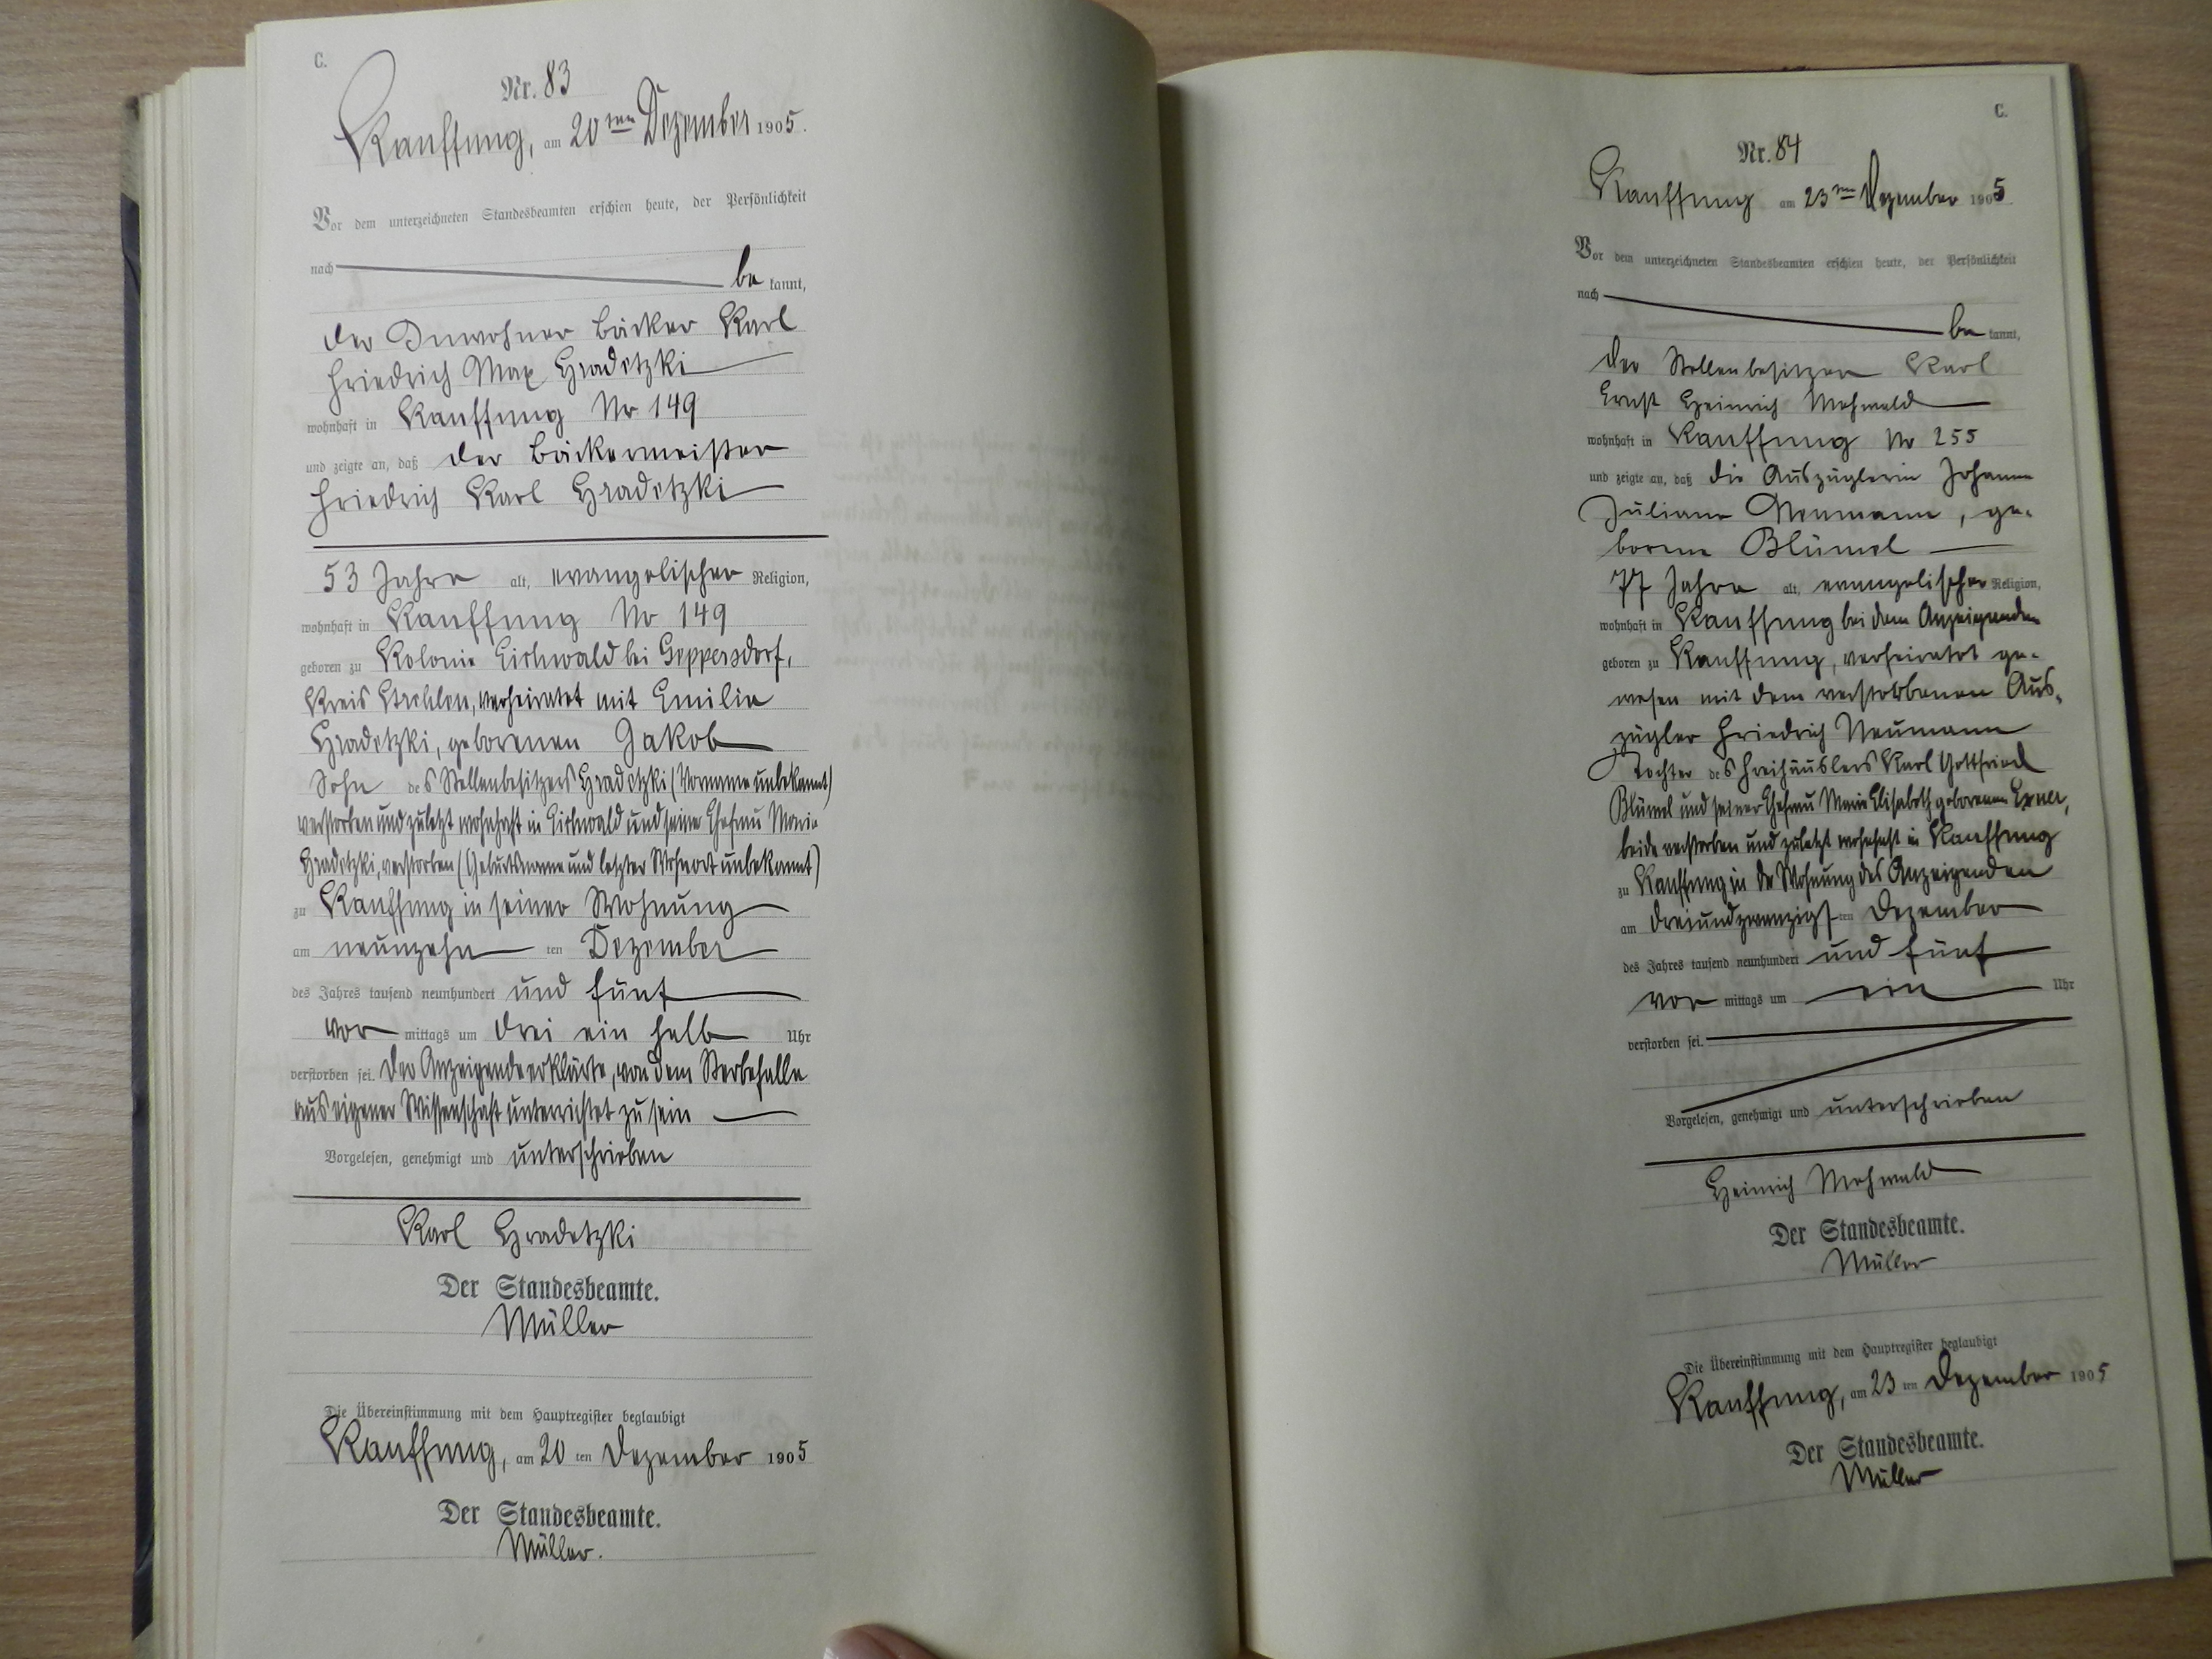 C.
Nr. 83
Kauffung, am 20ten Dezember 1905.
Vor dem unterzeichneten Standesbeamten erschien heute, der Persönlichkeit
nach
be kannt,
der Inwohner Bäcker Karl
Friedrich Max Gradetzki
wohnhaft in Kauffung Nr 149
und zeigte an, daß der Bäckermeister
Friedrich Karl Gradetzki
53 Jahre alt, evangelischer Religion,
wohnhaft in Kauffung Nr 149
geboren zu Kolonie Eichwald bei Geppersdorf,
Kreis Strehlen, verheiratet mit Emilie
Gradetzki, geborenen Jakob
Sohn des Stellenbesitzers Gradetzki (Vorname unbekannt)
verstorben und zuletzt wohnhaft in Eichwald und seine Ehefrau Marie
Gradetzki, verstorben (Geburtsname und letzter Wohnort unbekannt)
zu Kauffung in seiner Wohnung
am neunzehn ten Dezember
des Jahres tausend neunhundert und fünf
vor mittags um drei ein halb Uhr
verstorben sei. Der Anzeigende erklärte, von dem Sterbefalle
aus eigener Wissenschaft unterrichtet zu sein
Vorgelesen, genehmigt und unterschrieben
Karl Gradetzki
Der Standesbeamte.
Müller
Die Übereinstimmung mit dem Hauptregister beglaubigt
Kauffung, am 20 ten Dezember 1905
Der Standesbeamte.
Müller.
C.
Nr. 84
Kauffung am 23ten Dezember 1905
Vor dem unterzeichneten Standesbeamten erschien heute, der Persönlichkeit
nach
be kannt,
der Stellenbesitzer Karl
Ernst Heinrich Mehwald
wohnhaft in Kauffung Nr 255
und zeigte an, daß die Auszüglerin Johanne
Juliane Neumann, ge-
borene Blümel
77 Jahre alt, evangelischer Religion,
wohnhaft in Kauffung bei dem Anzeigenden
geboren zu Kauffung, verheiratet ge-
wesen mit dem verstorbenen Aus-
zügler Friedrich Neumann
Tochter des Freihäuslers Karl Gottfried
Blümel und seiner Ehefrau Marie Elisabeth geborenen Exner,
beide verstorben und zuletzt wohnhaft in Kauffung
zu Kauffung in der Wohnung des Anzeigenden
am dreiundzwanzigs ten Dezember
des Jahres tausend neunhundert und fünf
vor mittags um ein Uhr
verstorben sei.
Vorgelesen, genehmigt und unterschrieben
Heinrich Mehwald
Der Standesbeamte.
Müller
Die Übereinstimmung mit dem Hauptregister beglaubigt
Kauffung, am 23 ten Dezember 1905
Der Standesbeamte.
Müller